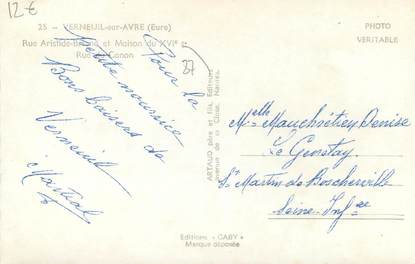 12€
25 - VERNEUIL-sur-AVRE (Eure)
Rue Aristide-Briand et Maison du XVIe s.
Rue du Canon
PHOTO
VERITABLE
27
Pour la
petite mouvrice
Bons baisers de
Verneuil
Martial
ARTAUD père et fils, Editeurs
avenue de la Close, Nantes.
Melle Mauchrétien Denise
Le Genetay
St Martin de Boscherville
Seine-Infre
Editions "GABY"
Marque déposée